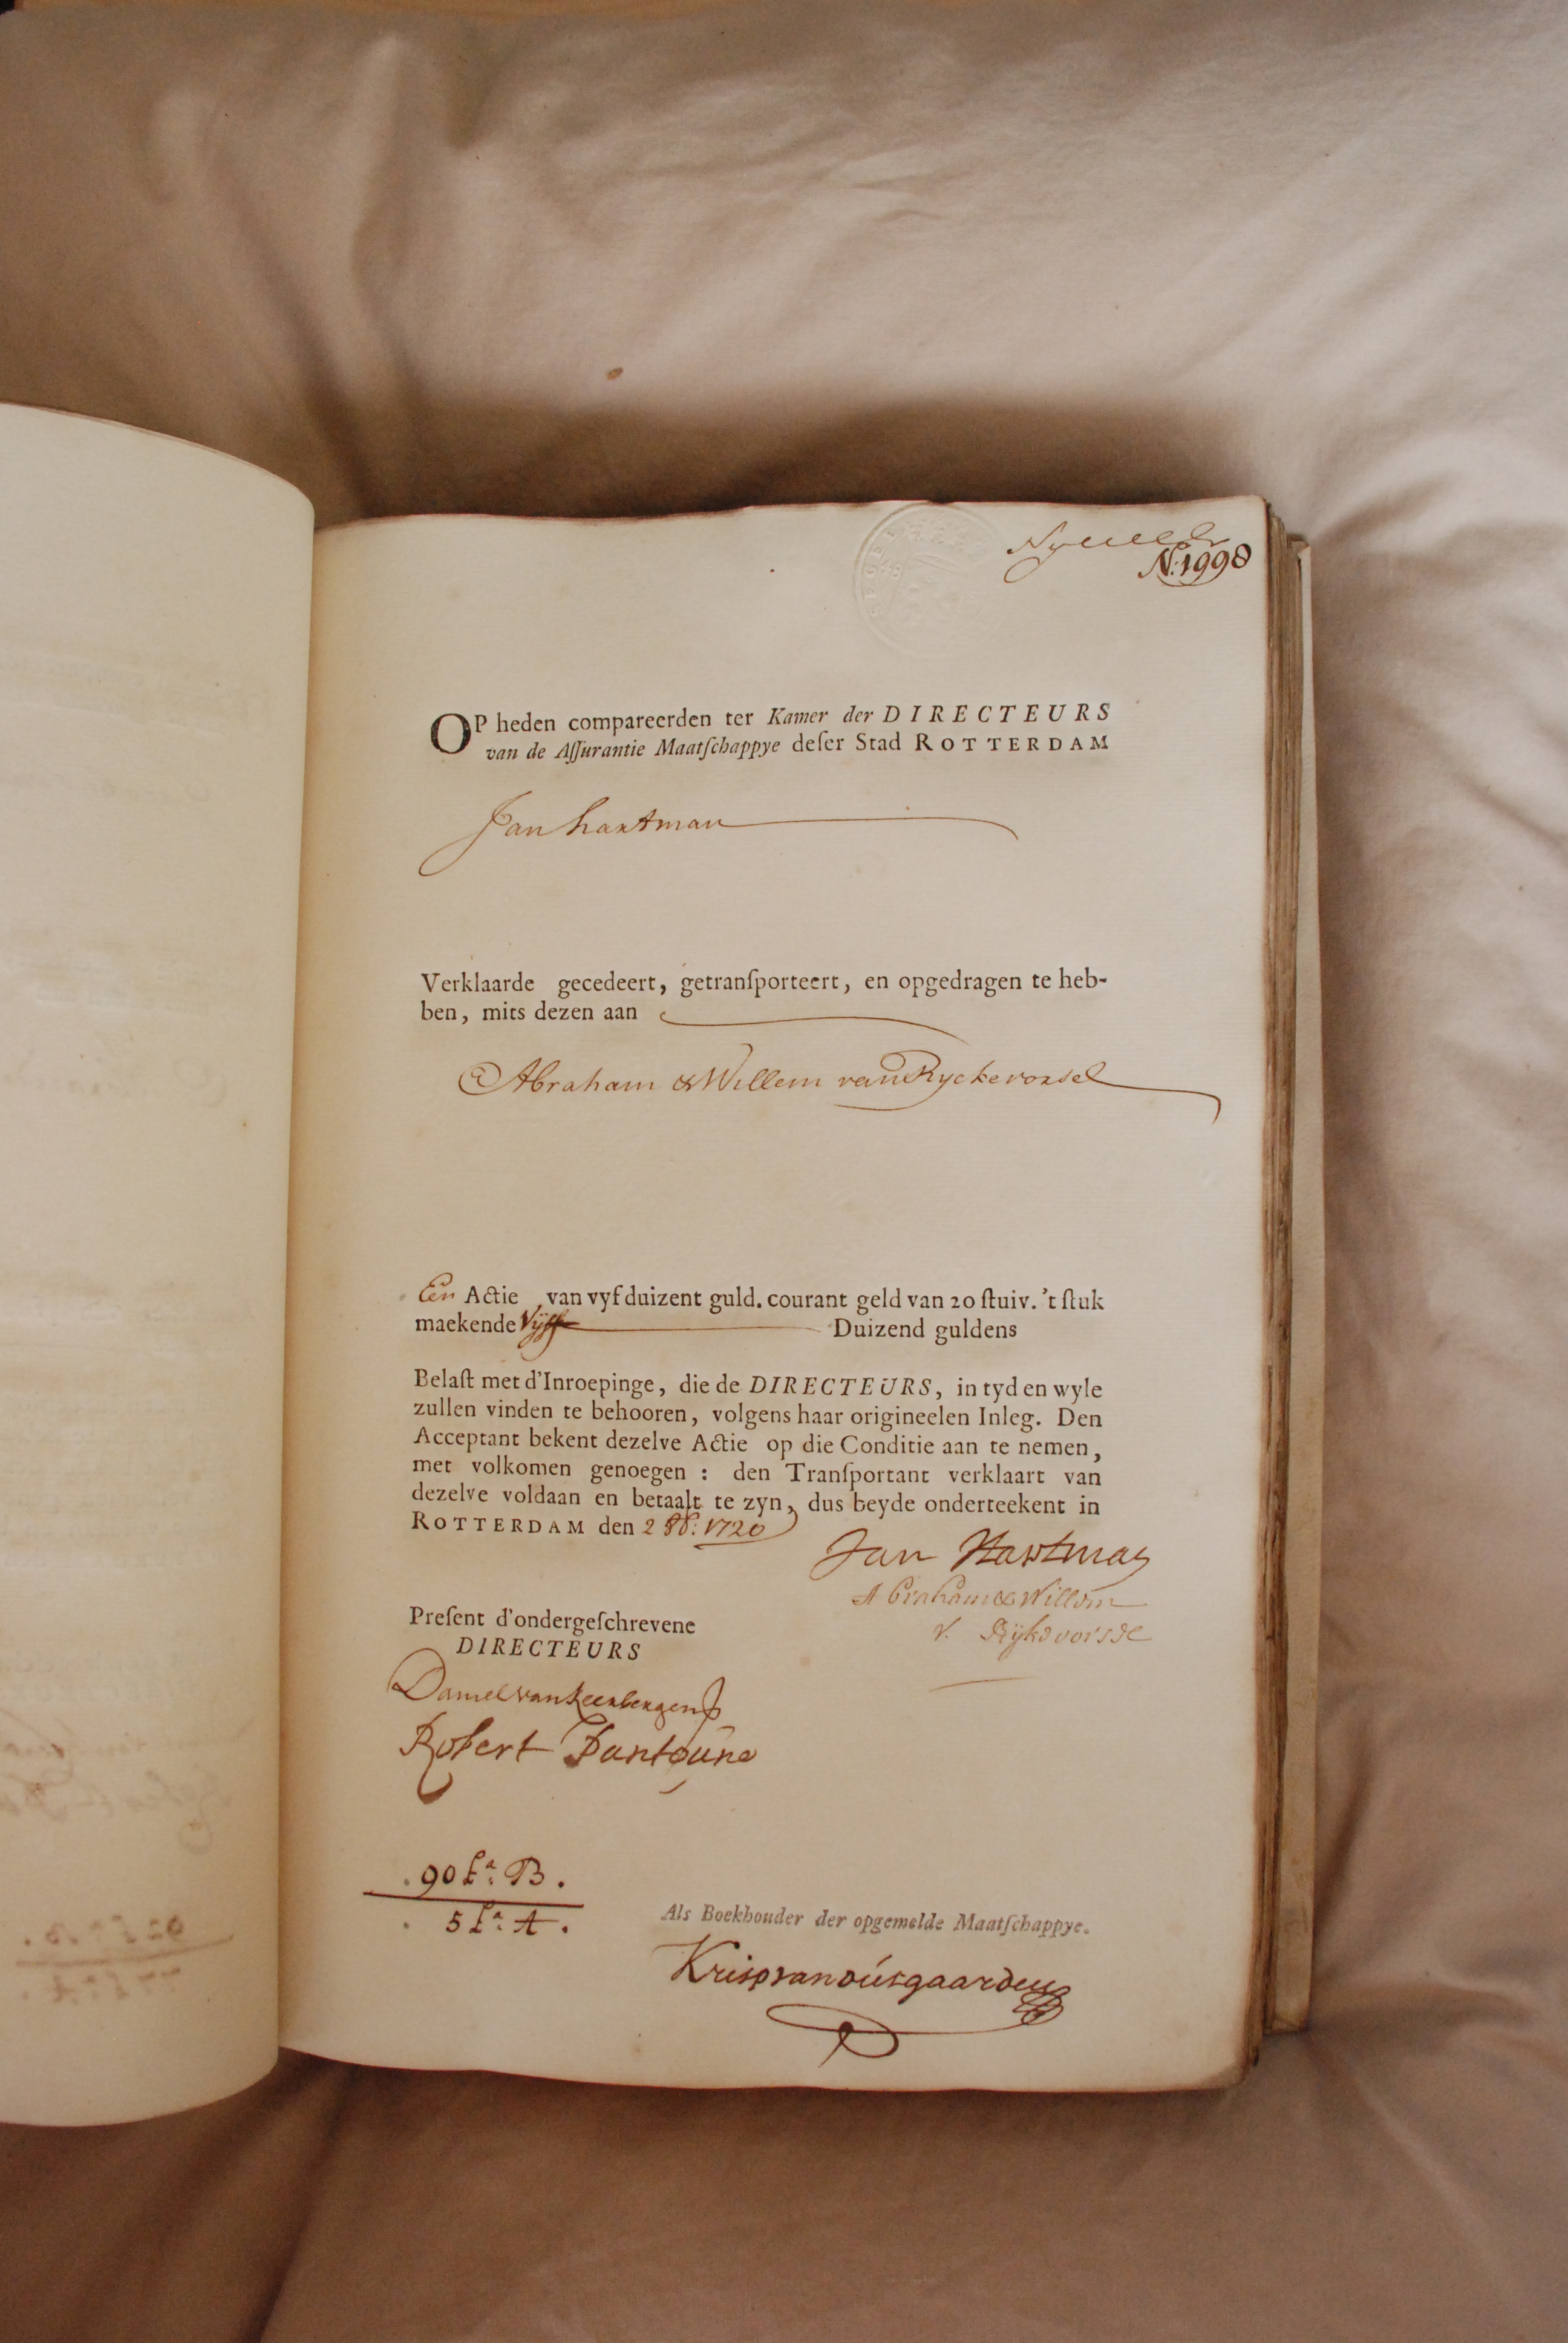 N:1998
OP heden compareerden ter Kamer der DIRECTEURS
van de Aſſurantie Maatſchappye deſer Stad ROTTERDAM
Jan hartman
Verklaarde gecedeert, getranſporteert, en opgedragen te heb-
ben, mits dezen aan
Abraham & Willem van Ryckevorsel
Een Actie van vyf duizent guld. courant geld van 20 ſtuiv. 't ſtuk
maekende Vijff Duizend guldens
Belaſt met d'Inroepinge, die de DIRECTEURS, in tyd en wyle
zullen vinden te behooren, volgens haar origineelen Inleg. Den
Acceptant bekent dezelve Actie op die Conditie aan te nemen,
met volkomen genoegen : den Tranſportant verklaart van
dezelve voldaan en betaalt te zyn, dus beyde onderteekent in
ROTTERDAM den 2 1720
Jan Hartman
Abraham & Willem
v. Rijkevorsel
Preſent d'ondergeſchrevene
DIRECTEURS
Daniel van Keerbergen
Robert
90 La: B.
5 La: A.
Als Boekhouder der opgemelde Maatſchappye.